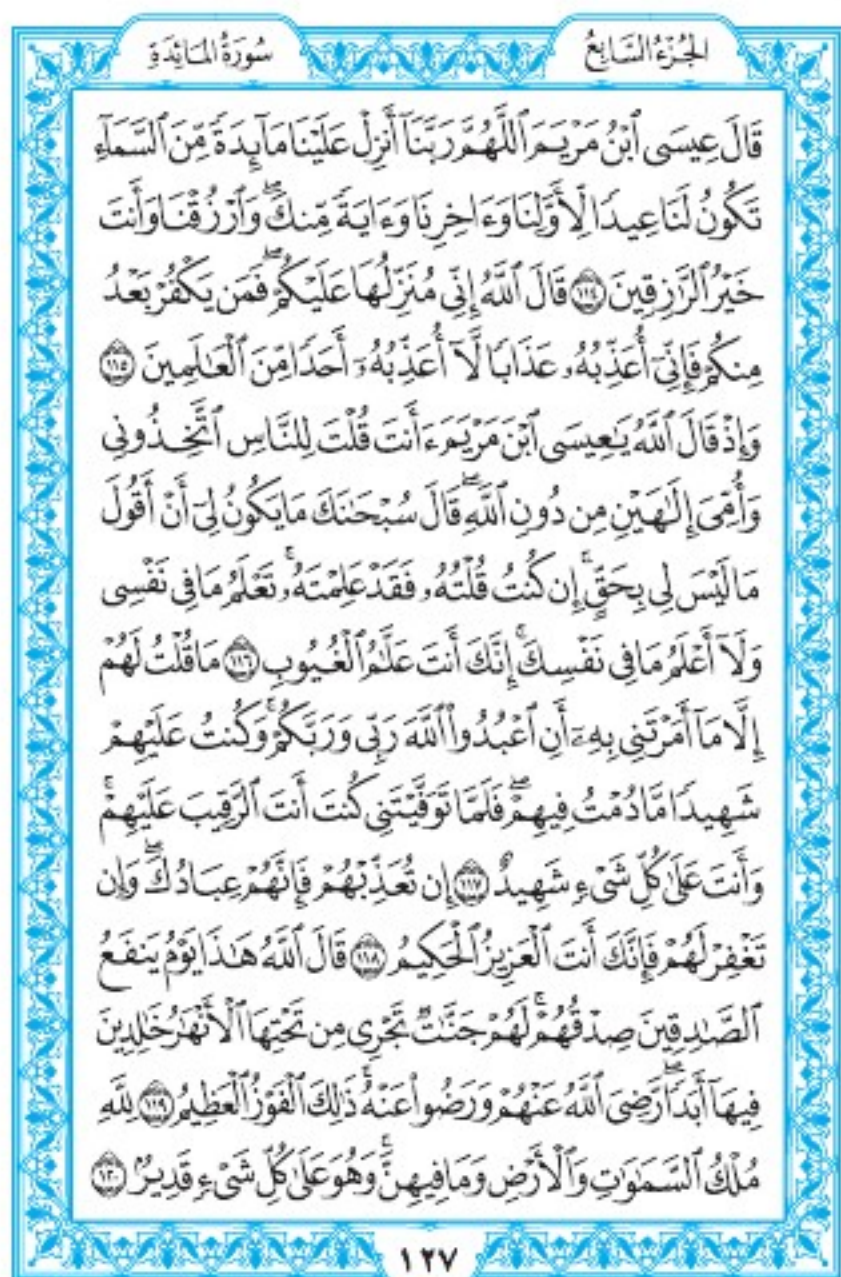 الجُزْءُ السَّابِعُ
سُورَةُ المَائِدَةِ
قَالَ عِيسَى ٱبْنُ مَرْيَمَ ٱللَّهُمَّ رَبَّنَآ أَنزِلْ عَلَيْنَا مَآئِدَةً مِّنَ ٱلسَّمَآءِ
تَكُونُ لَنَا عِيدًا لِّأَوَّلِنَا وَءَاخِرِنَا وَءَايَةً مِّنكَ ۖ وَٱرْزُقْنَا وَأَنتَ
خَيْرُ ٱلرَّٰزِقِينَ ١١٤ قَالَ ٱللَّهُ إِنِّي مُنَزِّلُهَا عَلَيْكُمْ ۖ فَمَن يَكْفُرْ بَعْدُ
مِنكُمْ فَإِنِّيٓ أُعَذِّبُهُۥ عَذَابًا لَّآ أُعَذِّبُهُۥٓ أَحَدًا مِّنَ ٱلْعَٰلَمِينَ ١١٥
وَإِذْ قَالَ ٱللَّهُ يَٰعِيسَى ٱبْنَ مَرْيَمَ ءَأَنتَ قُلْتَ لِلنَّاسِ ٱتَّخِذُونِي
وَأُمِّيَ إِلَٰهَيْنِ مِن دُونِ ٱللَّهِ ۖ قَالَ سُبْحَٰنَكَ مَا يَكُونُ لِيٓ أَنْ أَقُولَ
مَا لَيْسَ لِي بِحَقٍّ ۚ إِن كُنتُ قُلْتُهُۥ فَقَدْ عَلِمْتَهُۥ ۚ تَعْلَمُ مَا فِي نَفْسِي
وَلَآ أَعْلَمُ مَا فِي نَفْسِكَ ۚ إِنَّكَ أَنتَ عَلَّٰمُ ٱلْغُيُوبِ ١١٦ مَا قُلْتُ لَهُمْ
إِلَّا مَآ أَمَرْتَنِي بِهِۦٓ أَنِ ٱعْبُدُوا۟ ٱللَّهَ رَبِّي وَرَبَّكُمْ ۚ وَكُنتُ عَلَيْهِمْ
شَهِيدًا مَّا دُمْتُ فِيهِمْ ۖ فَلَمَّا تَوَفَّيْتَنِي كُنتَ أَنتَ ٱلرَّقِيبَ عَلَيْهِمْ ۚ
وَأَنتَ عَلَىٰ كُلِّ شَيْءٍ شَهِيدٌ ١١٧ إِن تُعَذِّبْهُمْ فَإِنَّهُمْ عِبَادُكَ ۖ وَإِن
تَغْفِرْ لَهُمْ فَإِنَّكَ أَنتَ ٱلْعَزِيزُ ٱلْحَكِيمُ ١١٨ قَالَ ٱللَّهُ هَٰذَا يَوْمُ يَنفَعُ
ٱلصَّٰدِقِينَ صِدْقُهُمْ ۚ لَهُمْ جَنَّٰتٌ تَجْرِي مِن تَحْتِهَا ٱلْأَنْهَٰرُ خَٰلِدِينَ
فِيهَآ أَبَدًا ۚ رَّضِيَ ٱللَّهُ عَنْهُمْ وَرَضُوا۟ عَنْهُ ۚ ذَٰلِكَ ٱلْفَوْزُ ٱلْعَظِيمُ ١١٩ لِلَّهِ
مُلْكُ ٱلسَّمَٰوَٰتِ وَٱلْأَرْضِ وَمَا فِيهِنَّ ۚ وَهُوَ عَلَىٰ كُلِّ شَيْءٍ قَدِيرٌۢ ١٢٠
١٢٧